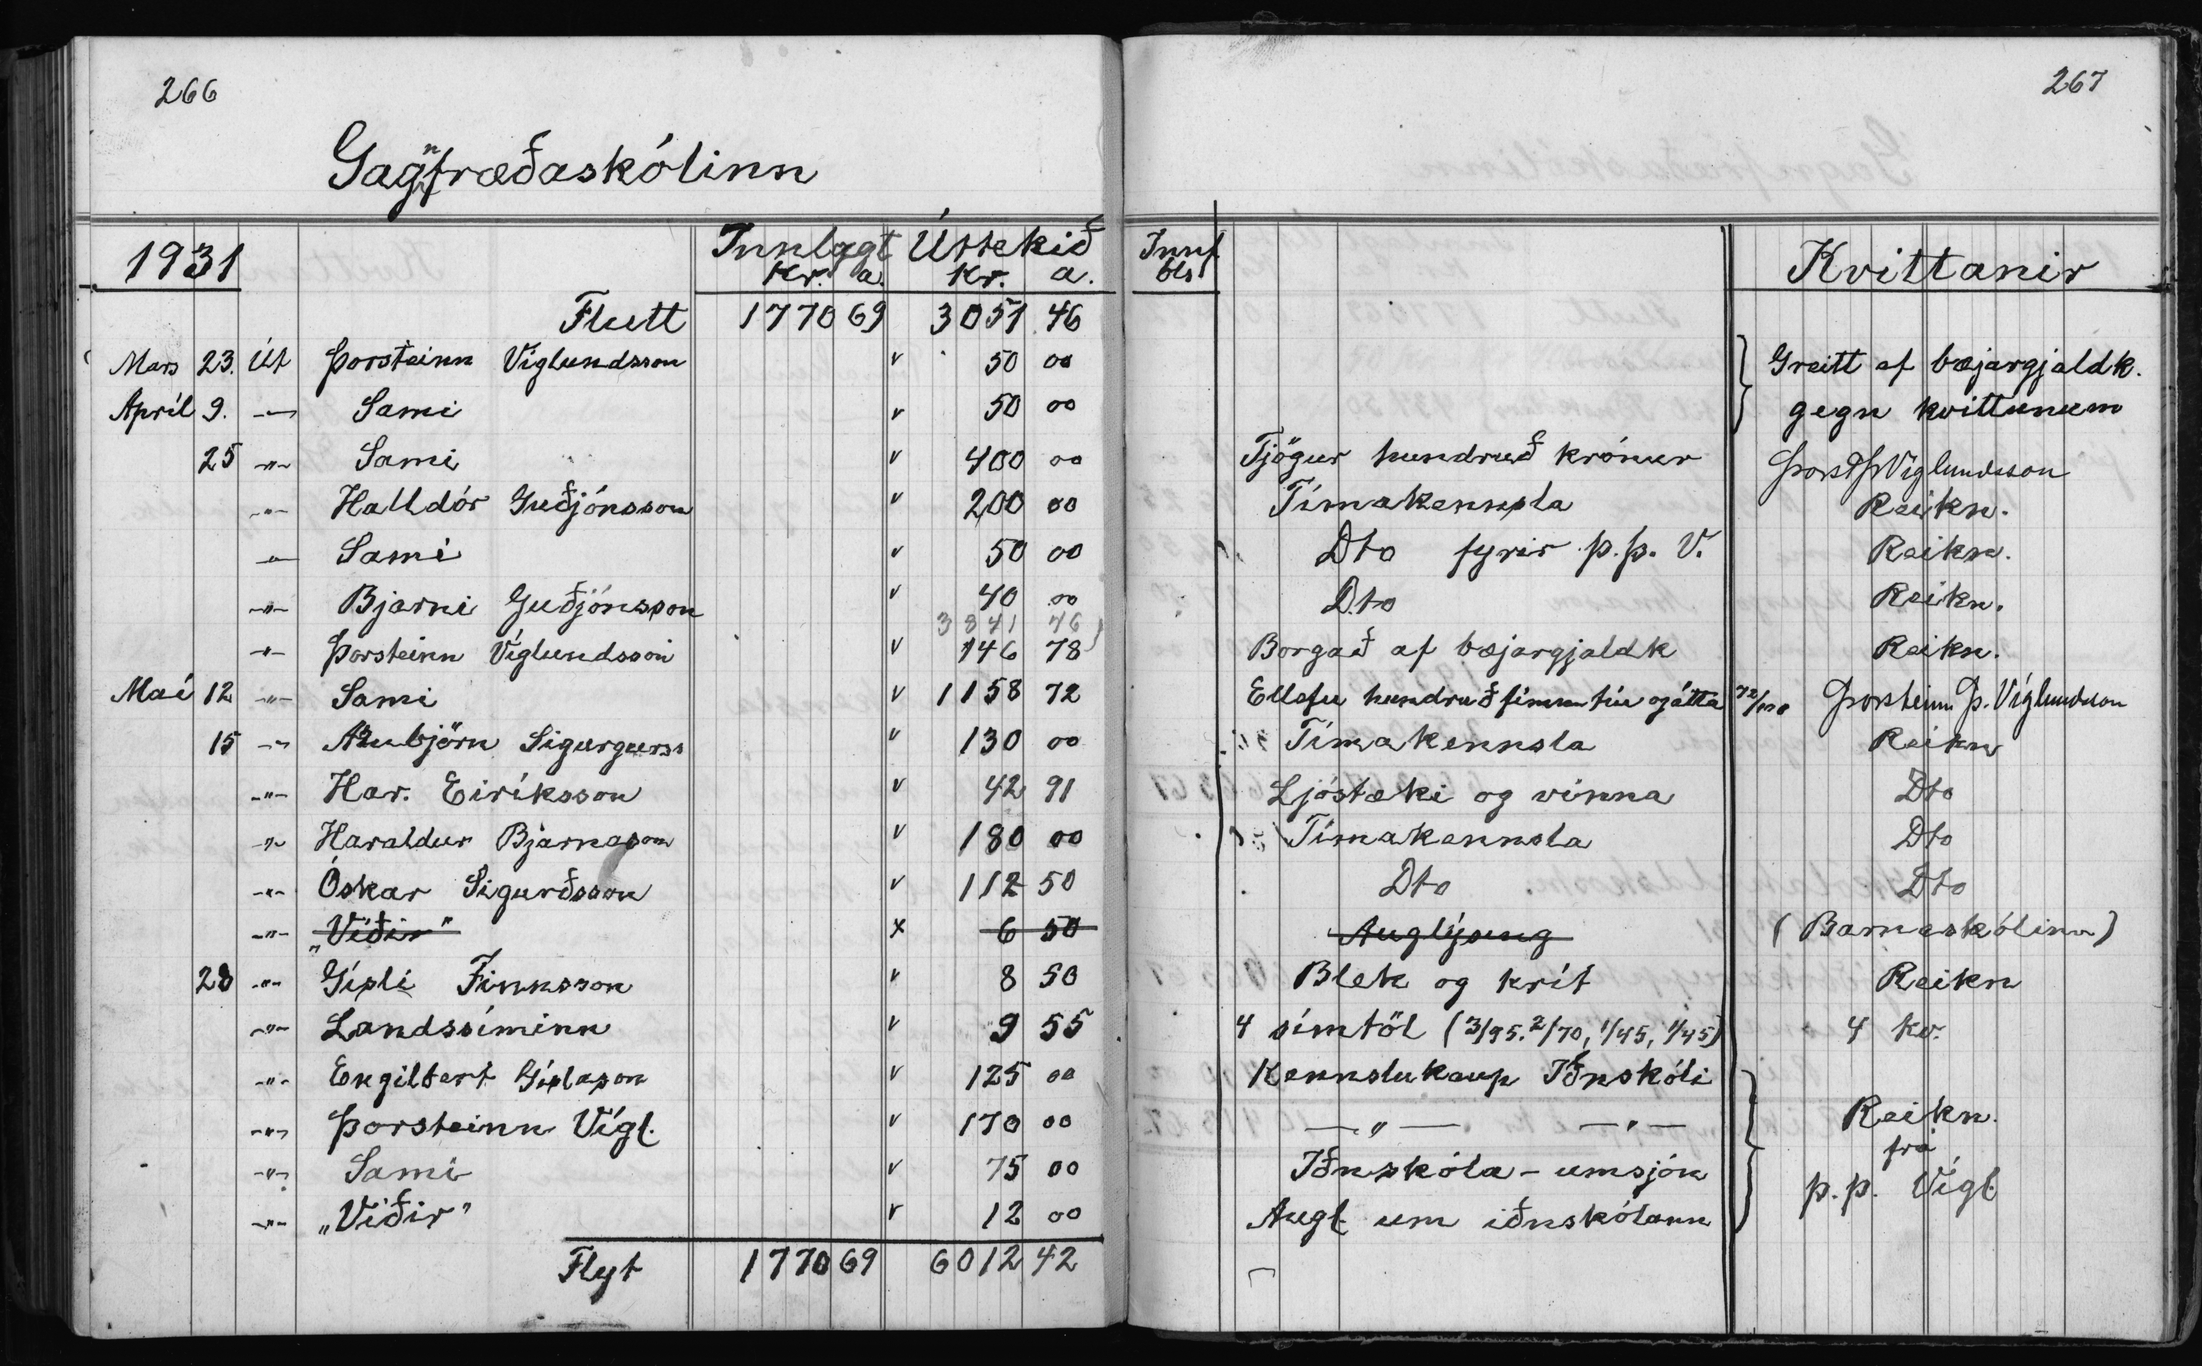 266
Gagnfræðaskólinn
1931 Innlagt Úttekið
Kr. a. Kr. a.
Flutt 1770 69 3051 46
Mars 23. Út Þorsteinn Víglundsson v 50 00
Apríl 9. —"— Sami v 50 00
25 —"— Sami v 400 00
—"— Halldór Guðjónsson v 200 00
—"— Sami v 50 00
—"— Bjarni Guðjónsson v 40 00
3841 46
—"— Þorsteinn Víglundsson v 146 78
Maí 12 —"— Sami v 1158 72
15 —"— Sigurgurss v 130 00
—"— Har. Eiríksson v 42 91
—"— Haraldur Bjarnason v 180 00
—"— Óskar Sigurðsson v 112 50
—"— „Víðir" x 6 50
28 —"— Gísli Finnsson v 8 50
—"— Landssíminn v 9 55
—"— Engilbert Gíslason v 125 00
—"— Þorsteinn Vígl. v 170 00
—"— Sami v 75 00
—"— „Víðir" v 12 00
Flyt 1770 69 6012 42
267
Innf bls Kvittanir
Greitt af bæjargjaldk.
gegn kvittunum
Fjögur hundruð krónur Þorst Þ Víglundsson
Tímakennsla Reikn.
Dto fyrir Þ. Þ. V. Reikn.
Dto Reikn.
Borgað af bæjargjaldk Reikn.
Ellefu hundruð fimmtíu og átta 72/100 Þorsteinn Þ. Víglundsson
Tímakennsla Reikn
Ljóstæki og vinna Dto
Tímakennsla Dto
Dto Dto
Auglýsing (Barnaskólinn)
Blek og krít Reikn
4 símtöl (3/95. 2/70, 1/45, 1/45) 4 kv.
Kennslukaup Iðnskóli
—"— —"— Reikn.
frá
Iðnskóla - umsjón Þ. Þ. Vígl.
Augl. um iðnskólann